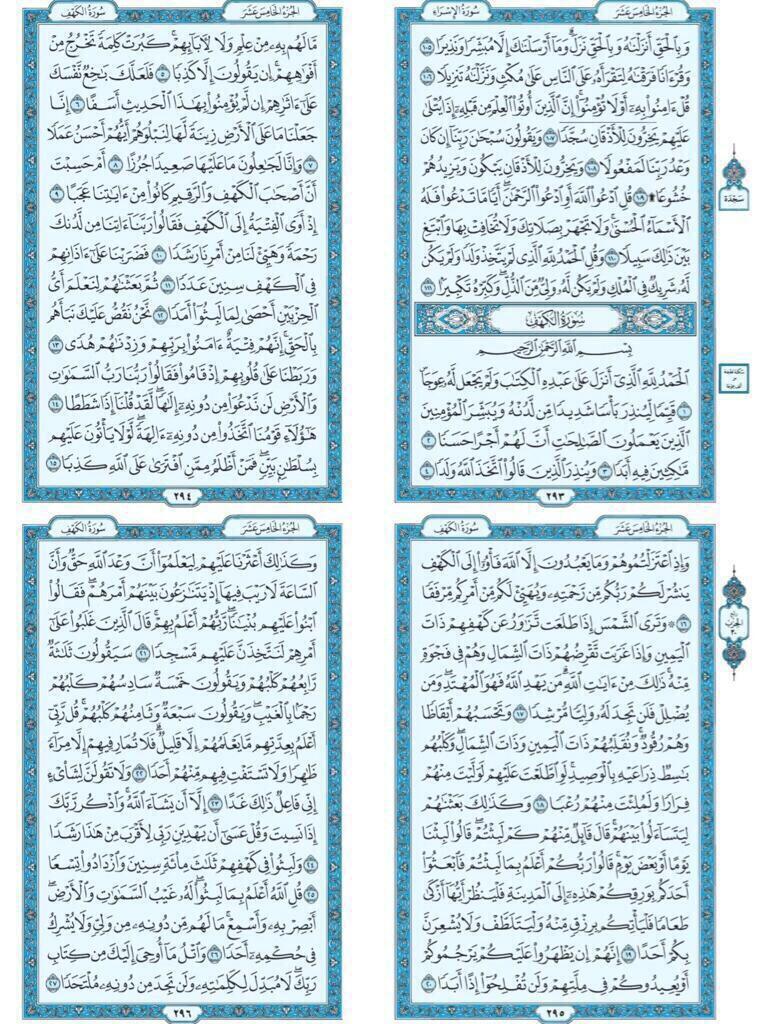 الجزء الخامس عشر
سورة الإسراء
وَبِالْحَقِّ أَنزَلْنَاهُ وَبِالْحَقِّ نَزَلَ وَمَا أَرْسَلْنَاكَ إِلَّا مُبَشِّرًا وَنَذِيرًا ١٠٥
وَقُرْءَانًا فَرَقْنَاهُ لِتَقْرَأَهُ عَلَى النَّاسِ عَلَىٰ مُكْثٍ وَنَزَّلْنَاهُ تَنزِيلًا ١٠٦
قُلْ ءَامِنُوا بِهِ أَوْ لَا تُؤْمِنُوا إِنَّ الَّذِينَ أُوتُوا الْعِلْمَ مِن قَبْلِهِ إِذَا يُتْلَىٰ
عَلَيْهِمْ يَخِرُّونَ لِلْأَذْقَانِ سُجَّدًا ١٠٧ وَيَقُولُونَ سُبْحَانَ رَبِّنَا إِن كَانَ
وَعْدُ رَبِّنَا لَمَفْعُولًا ١٠٨ وَيَخِرُّونَ لِلْأَذْقَانِ يَبْكُونَ وَيَزِيدُهُمْ
خُشُوعًا ۩ ١٠٩ قُلِ ادْعُوا اللَّهَ أَوِ ادْعُوا الرَّحْمَٰنَ أَيًّا مَّا تَدْعُوا فَلَهُ
الْأَسْمَاءُ الْحُسْنَىٰ وَلَا تَجْهَرْ بِصَلَاتِكَ وَلَا تُخَافِتْ بِهَا وَابْتَغِ
بَيْنَ ذَٰلِكَ سَبِيلًا ١١٠ وَقُلِ الْحَمْدُ لِلَّهِ الَّذِي لَمْ يَتَّخِذْ وَلَدًا وَلَمْ يَكُن
لَّهُ شَرِيكٌ فِي الْمُلْكِ وَلَمْ يَكُن لَّهُ وَلِيٌّ مِّنَ الذُّلِّ وَكَبِّرْهُ تَكْبِيرًا ١١١
سورة الكهف
بِسْمِ اللَّهِ الرَّحْمَٰنِ الرَّحِيمِ
الْحَمْدُ لِلَّهِ الَّذِي أَنزَلَ عَلَىٰ عَبْدِهِ الْكِتَابَ وَلَمْ يَجْعَل لَّهُ عِوَجَا
١ قَيِّمًا لِّيُنذِرَ بَأْسًا شَدِيدًا مِّن لَّدُنْهُ وَيُبَشِّرَ الْمُؤْمِنِينَ
الَّذِينَ يَعْمَلُونَ الصَّالِحَاتِ أَنَّ لَهُمْ أَجْرًا حَسَنًا ٢
مَّاكِثِينَ فِيهِ أَبَدًا ٣ وَيُنذِرَ الَّذِينَ قَالُوا اتَّخَذَ اللَّهُ وَلَدًا ٤
٢٩٣
سجدة
الجزء الخامس عشر
سورة الكهف
مَّا لَهُم بِهِ مِنْ عِلْمٍ وَلَا لِآبَائِهِمْ كَبُرَتْ كَلِمَةً تَخْرُجُ مِنْ
أَفْوَاهِهِمْ إِن يَقُولُونَ إِلَّا كَذِبًا ٥ فَلَعَلَّكَ بَاخِعٌ نَّفْسَكَ
عَلَىٰ ءَاثَارِهِمْ إِن لَّمْ يُؤْمِنُوا بِهَٰذَا الْحَدِيثِ أَسَفًا ٦ إِنَّا
جَعَلْنَا مَا عَلَى الْأَرْضِ زِينَةً لَّهَا لِنَبْلُوَهُمْ أَيُّهُمْ أَحْسَنُ عَمَلًا
٧ وَإِنَّا لَجَاعِلُونَ مَا عَلَيْهَا صَعِيدًا جُرُزًا ٨ أَمْ حَسِبْتَ
أَنَّ أَصْحَابَ الْكَهْفِ وَالرَّقِيمِ كَانُوا مِنْ ءَايَاتِنَا عَجَبًا ٩
إِذْ أَوَى الْفِتْيَةُ إِلَى الْكَهْفِ فَقَالُوا رَبَّنَا ءَاتِنَا مِن لَّدُنكَ
رَحْمَةً وَهَيِّئْ لَنَا مِنْ أَمْرِنَا رَشَدًا ١٠ فَضَرَبْنَا عَلَىٰ ءَاذَانِهِمْ
فِي الْكَهْفِ سِنِينَ عَدَدًا ١١ ثُمَّ بَعَثْنَاهُمْ لِنَعْلَمَ أَيُّ
الْحِزْبَيْنِ أَحْصَىٰ لِمَا لَبِثُوا أَمَدًا ١٢ نَّحْنُ نَقُصُّ عَلَيْكَ نَبَأَهُم
بِالْحَقِّ إِنَّهُمْ فِتْيَةٌ ءَامَنُوا بِرَبِّهِمْ وَزِدْنَاهُمْ هُدًى ١٣
وَرَبَطْنَا عَلَىٰ قُلُوبِهِمْ إِذْ قَامُوا فَقَالُوا رَبُّنَا رَبُّ السَّمَاوَاتِ
وَالْأَرْضِ لَن نَّدْعُوَا مِن دُونِهِ إِلَٰهًا لَّقَدْ قُلْنَا إِذًا شَطَطًا ١٤
هَٰؤُلَاءِ قَوْمُنَا اتَّخَذُوا مِن دُونِهِ ءَالِهَةً لَّوْلَا يَأْتُونَ عَلَيْهِم
بِسُلْطَانٍ بَيِّنٍ فَمَنْ أَظْلَمُ مِمَّنِ افْتَرَىٰ عَلَى اللَّهِ كَذِبًا ١٥
٢٩٤
الجزء الخامس عشر
سورة الكهف
وَإِذِ اعْتَزَلْتُمُوهُمْ وَمَا يَعْبُدُونَ إِلَّا اللَّهَ فَأْوُوا إِلَى الْكَهْفِ
يَنشُرْ لَكُمْ رَبُّكُم مِّن رَّحْمَتِهِ وَيُهَيِّئْ لَكُم مِّنْ أَمْرِكُم مِّرْفَقًا
١٦ ۞ وَتَرَى الشَّمْسَ إِذَا طَلَعَت تَّزَاوَرُ عَن كَهْفِهِمْ ذَاتَ
الْيَمِينِ وَإِذَا غَرَبَت تَّقْرِضُهُمْ ذَاتَ الشِّمَالِ وَهُمْ فِي فَجْوَةٍ
مِّنْهُ ذَٰلِكَ مِنْ ءَايَاتِ اللَّهِ مَن يَهْدِ اللَّهُ فَهُوَ الْمُهْتَدِ وَمَن
يُضْلِلْ فَلَن تَجِدَ لَهُ وَلِيًّا مُّرْشِدًا ١٧ وَتَحْسَبُهُمْ أَيْقَاظًا
وَهُمْ رُقُودٌ وَنُقَلِّبُهُمْ ذَاتَ الْيَمِينِ وَذَاتَ الشِّمَالِ وَكَلْبُهُم
بَاسِطٌ ذِرَاعَيْهِ بِالْوَصِيدِ لَوِ اطَّلَعْتَ عَلَيْهِمْ لَوَلَّيْتَ مِنْهُمْ
فِرَارًا وَلَمُلِئْتَ مِنْهُمْ رُعْبًا ١٨ وَكَذَٰلِكَ بَعَثْنَاهُمْ
لِيَتَسَاءَلُوا بَيْنَهُمْ قَالَ قَائِلٌ مِّنْهُمْ كَمْ لَبِثْتُمْ قَالُوا لَبِثْنَا
يَوْمًا أَوْ بَعْضَ يَوْمٍ قَالُوا رَبُّكُمْ أَعْلَمُ بِمَا لَبِثْتُمْ فَابْعَثُوا
أَحَدَكُم بِوَرِقِكُمْ هَٰذِهِ إِلَى الْمَدِينَةِ فَلْيَنظُرْ أَيُّهَا أَزْكَىٰ
طَعَامًا فَلْيَأْتِكُم بِرِزْقٍ مِّنْهُ وَلْيَتَلَطَّفْ وَلَا يُشْعِرَنَّ
بِكُمْ أَحَدًا ١٩ إِنَّهُمْ إِن يَظْهَرُوا عَلَيْكُمْ يَرْجُمُوكُمْ
أَوْ يُعِيدُوكُمْ فِي مِلَّتِهِمْ وَلَن تُفْلِحُوا إِذًا أَبَدًا ٢٠
٢٩٥
الجزء الخامس عشر
سورة الكهف
وَكَذَٰلِكَ أَعْثَرْنَا عَلَيْهِمْ لِيَعْلَمُوا أَنَّ وَعْدَ اللَّهِ حَقٌّ وَأَنَّ
السَّاعَةَ لَا رَيْبَ فِيهَا إِذْ يَتَنَازَعُونَ بَيْنَهُمْ أَمْرَهُمْ فَقَالُوا
ابْنُوا عَلَيْهِم بُنْيَانًا رَّبُّهُمْ أَعْلَمُ بِهِمْ قَالَ الَّذِينَ غَلَبُوا عَلَىٰ
أَمْرِهِمْ لَنَتَّخِذَنَّ عَلَيْهِم مَّسْجِدًا ٢١ سَيَقُولُونَ ثَلَاثَةٌ
رَّابِعُهُمْ كَلْبُهُمْ وَيَقُولُونَ خَمْسَةٌ سَادِسُهُمْ كَلْبُهُمْ
رَجْمًا بِالْغَيْبِ وَيَقُولُونَ سَبْعَةٌ وَثَامِنُهُمْ كَلْبُهُمْ قُل رَّبِّي
أَعْلَمُ بِعِدَّتِهِم مَّا يَعْلَمُهُمْ إِلَّا قَلِيلٌ فَلَا تُمَارِ فِيهِمْ إِلَّا مِرَاءً
ظَاهِرًا وَلَا تَسْتَفْتِ فِيهِم مِّنْهُمْ أَحَدًا ٢٢ وَلَا تَقُولَنَّ لِشَايْءٍ
إِنِّي فَاعِلٌ ذَٰلِكَ غَدًا ٢٣ إِلَّا أَن يَشَاءَ اللَّهُ وَاذْكُر رَّبَّكَ
إِذَا نَسِيتَ وَقُلْ عَسَىٰ أَن يَهْدِيَنِ رَبِّي لِأَقْرَبَ مِنْ هَٰذَا رَشَدًا
٢٤ وَلَبِثُوا فِي كَهْفِهِمْ ثَلَاثَ مِائَةٍ سِنِينَ وَازْدَادُوا تِسْعًا
٢٥ قُلِ اللَّهُ أَعْلَمُ بِمَا لَبِثُوا لَهُ غَيْبُ السَّمَاوَاتِ وَالْأَرْضِ
أَبْصِرْ بِهِ وَأَسْمِعْ مَا لَهُم مِّن دُونِهِ مِن وَلِيٍّ وَلَا يُشْرِكُ
فِي حُكْمِهِ أَحَدًا ٢٦ وَاتْلُ مَا أُوحِيَ إِلَيْكَ مِن كِتَابِ
رَبِّكَ لَا مُبَدِّلَ لِكَلِمَاتِهِ وَلَن تَجِدَ مِن دُونِهِ مُلْتَحَدًا ٢٧
٢٩٦